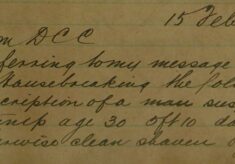 15 Feb
m DCC
ferring to my message
Housebreaking the fol
scription of a man sus
age 30 5ft10 da
erwise clean shaven